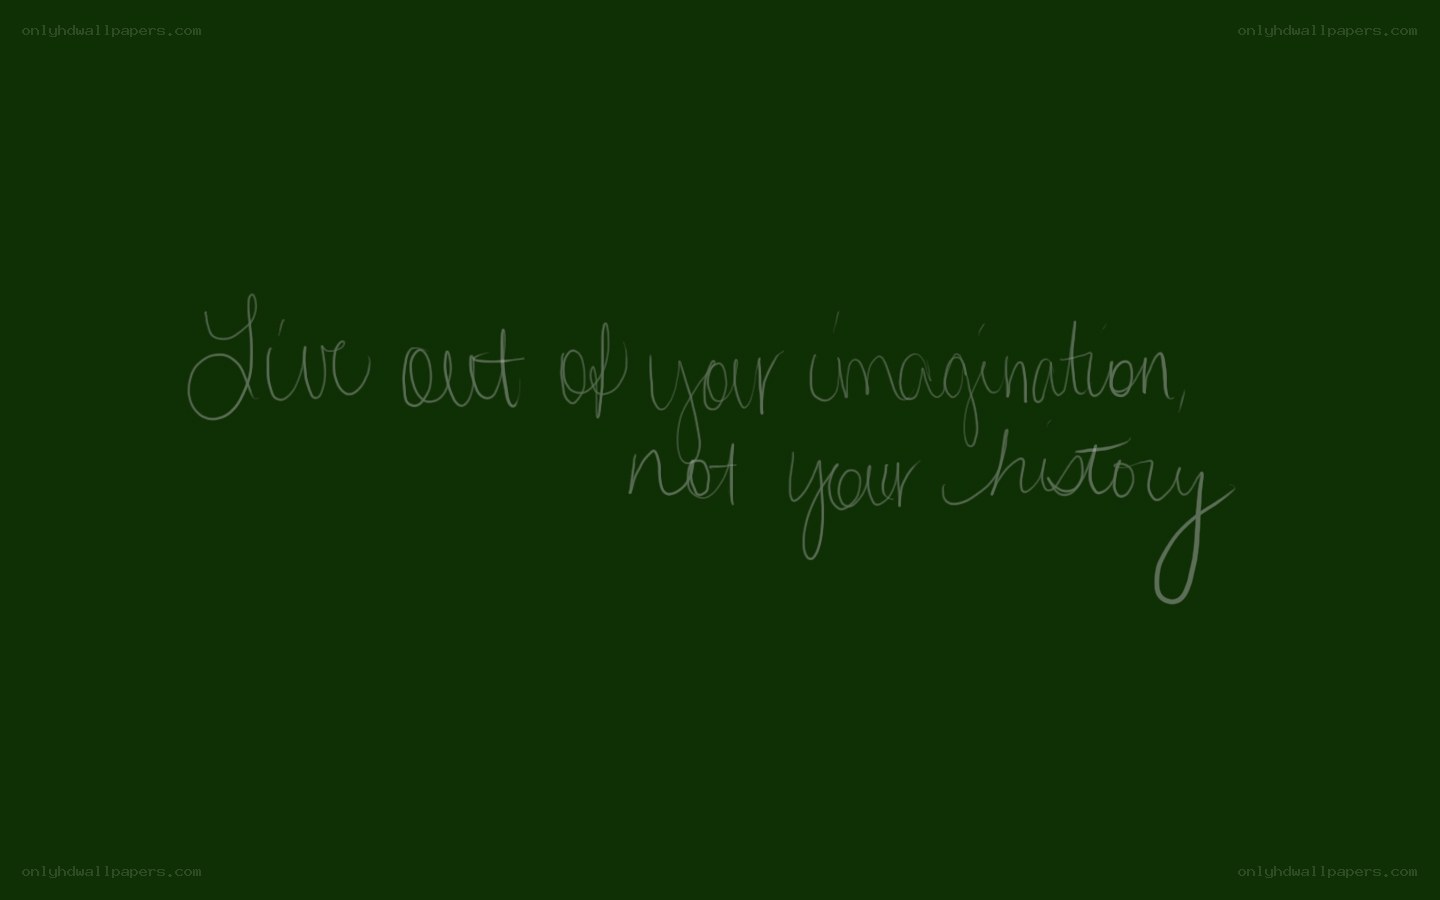 onlyhdwallpapers.com onlyhdwallpapers.com
Live out of your imagination,
not your history
onlyhdwallpapers.com onlyhdwallpapers.com